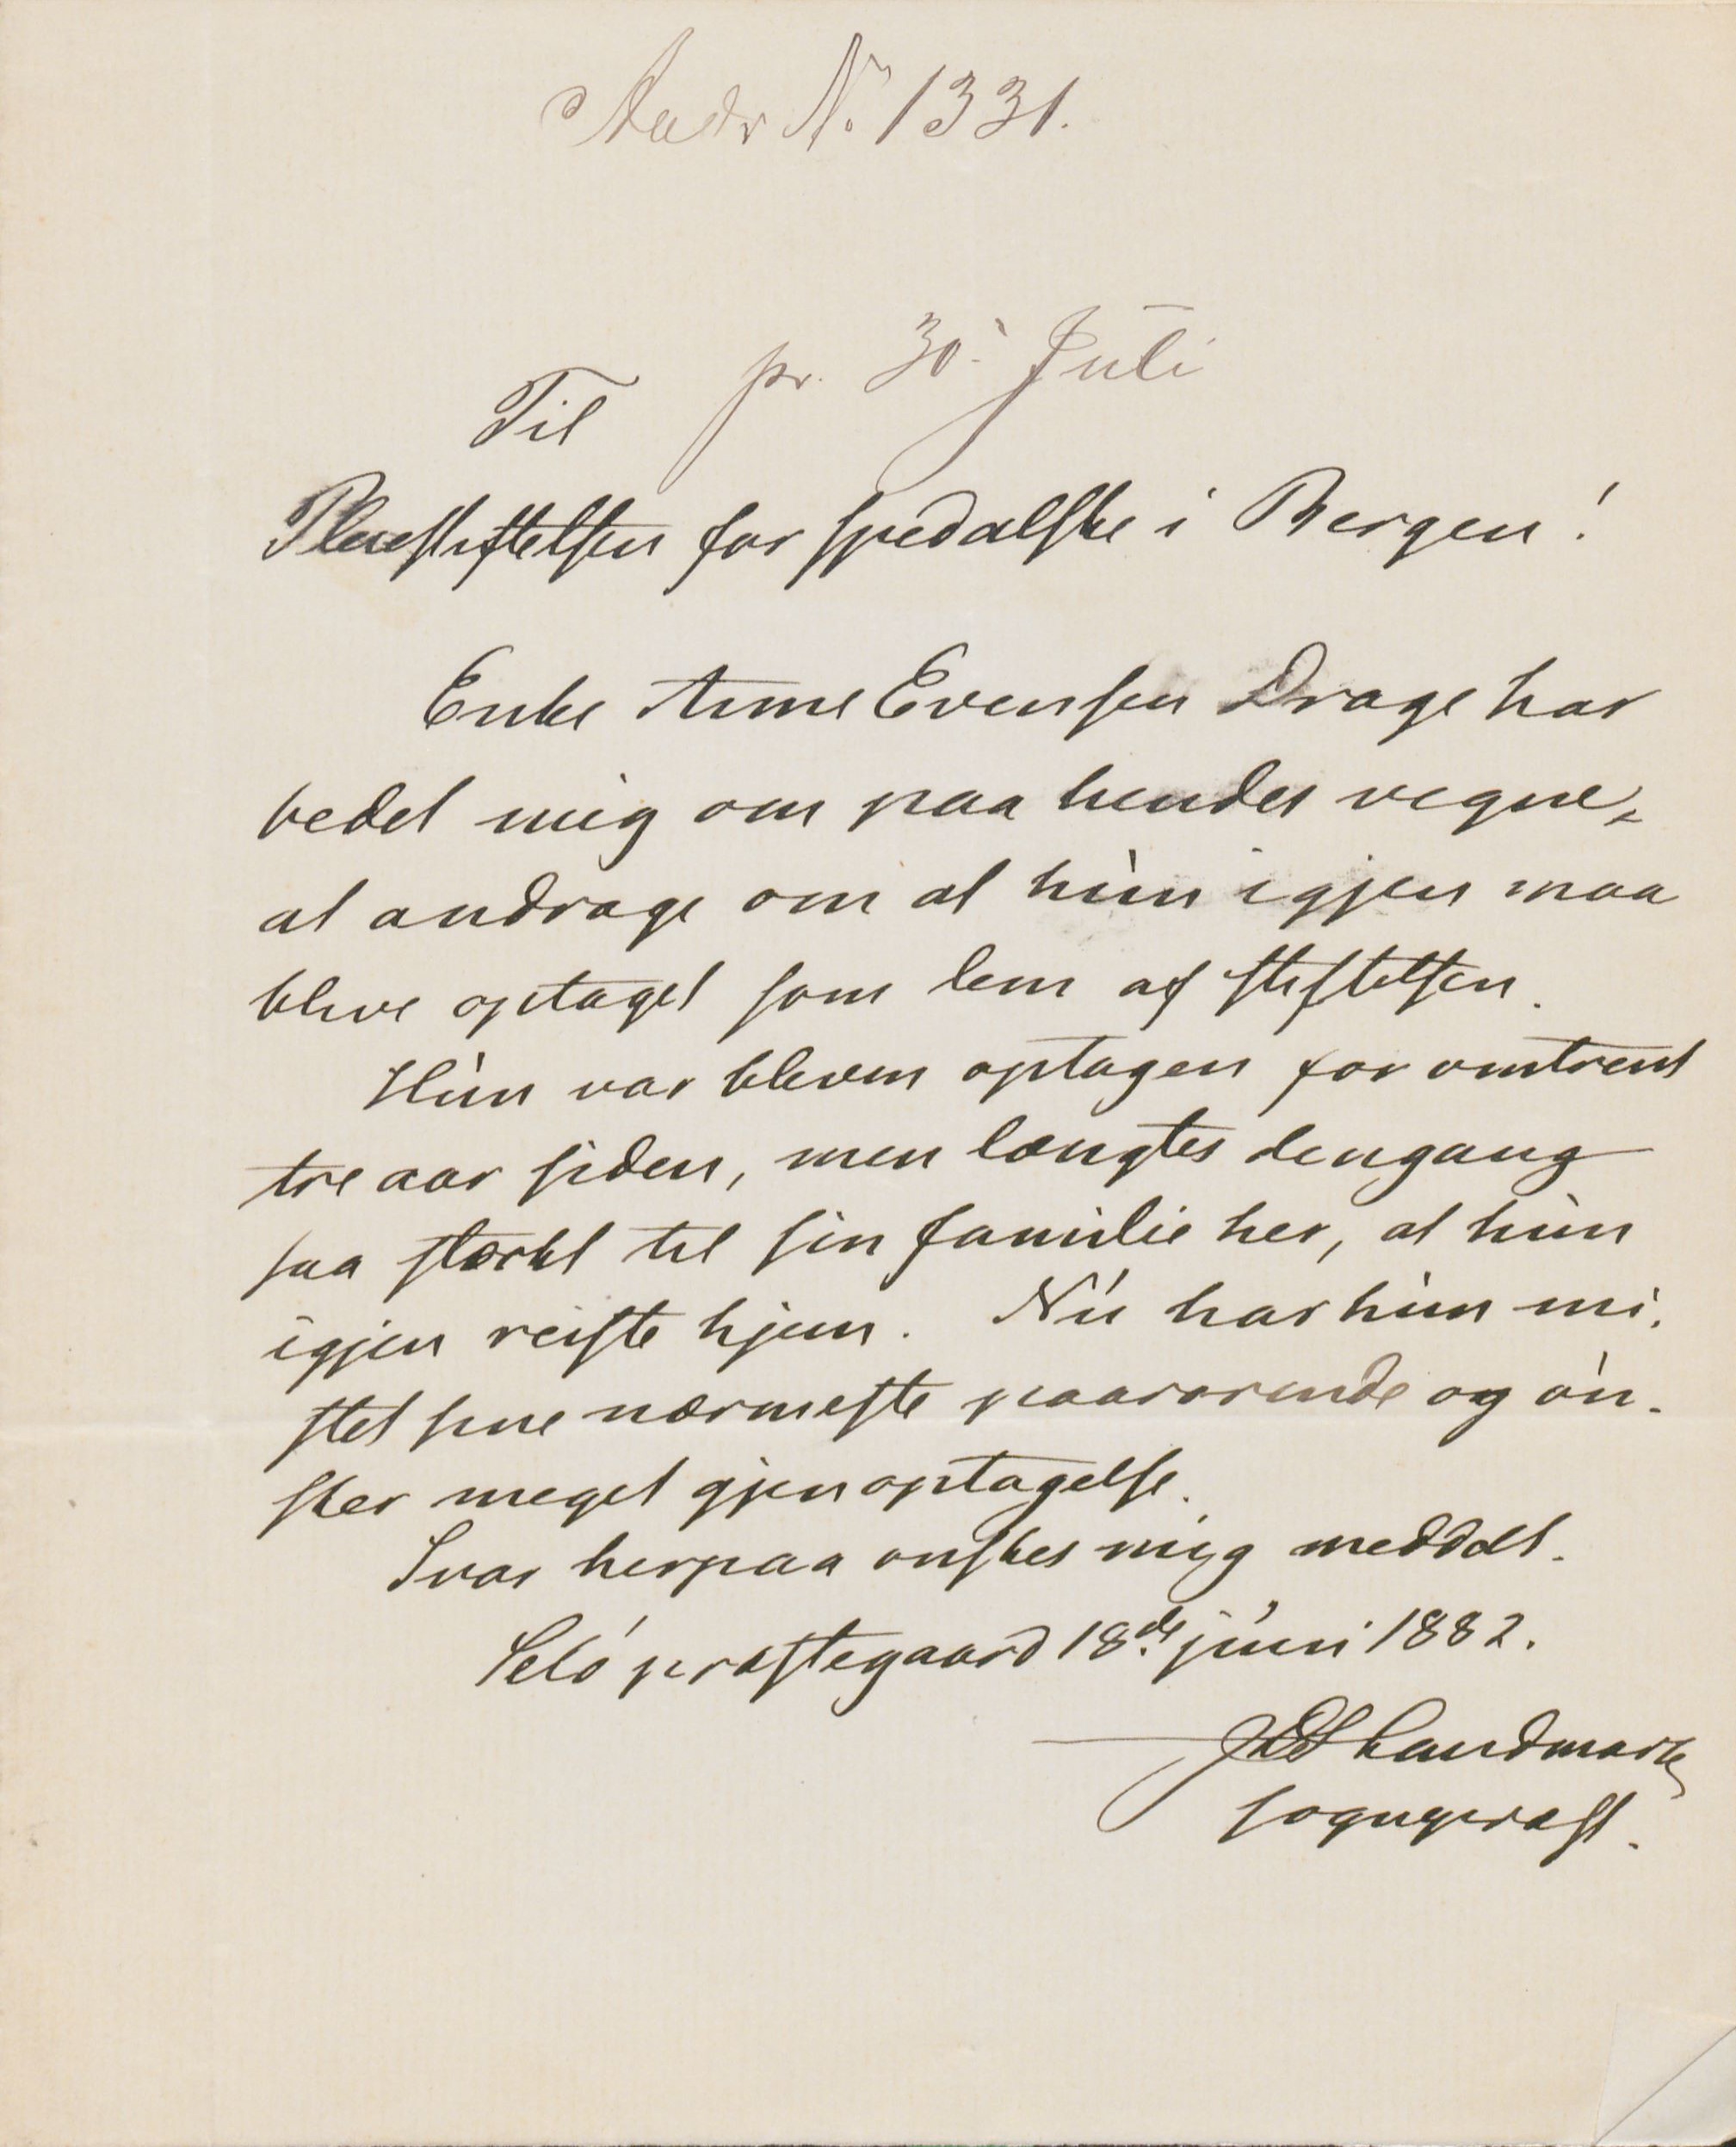 Andr N. 1331.
pr. 30. Juli
Til
Pleiestiftelsen for spedalske i Bergen!
Enke Anne Evensen Drage har
bedet mig om paa hendes vegne,
at andrage om at hùn igjen maa
blive optaget som lem af stiftelsen.
Hùn var bleven optagen for omtrent
tre aar siden, men længtes dengang
saa stærkt til sin familie her, at hùn
igjen reiste hjem. Nù har hùn mi-
stet sine nærmeste paarørende og øn-
sker meget gjenoptagelse.
Svar herpaa ønskes mig meddelt.
Selø præstegaard 18de jùni 1882.
Landmark
sognepræst.